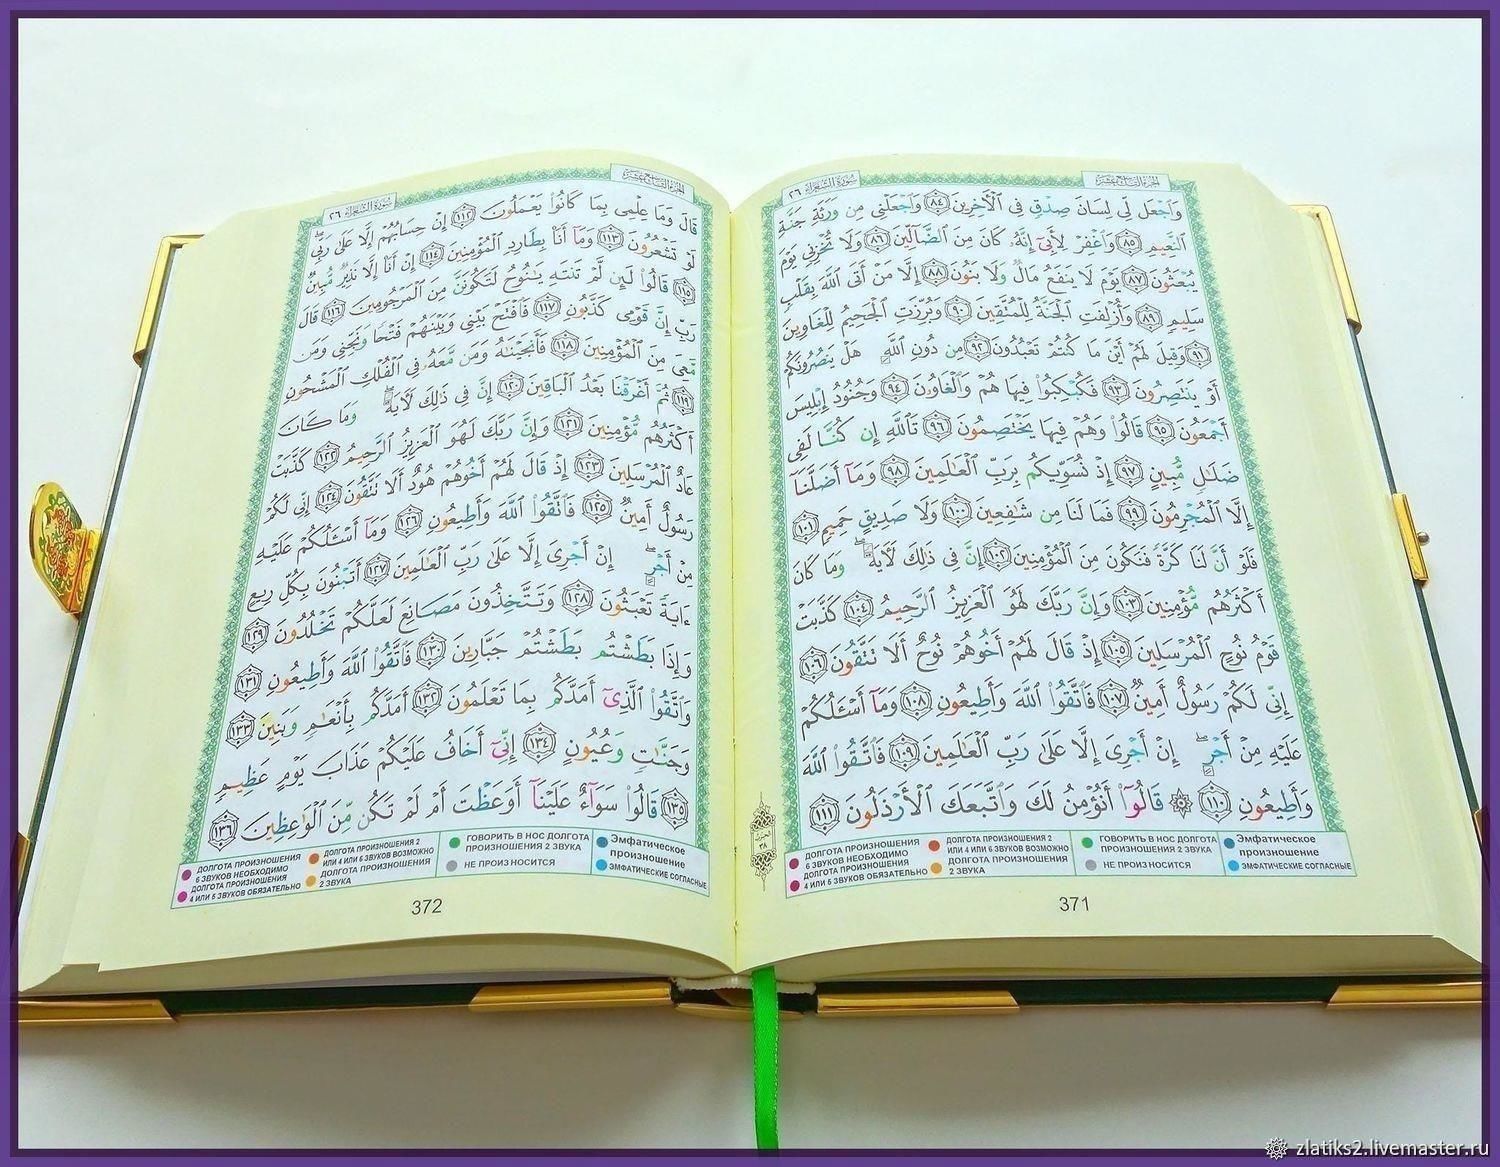 الجزء التاسع عشر
سورة الشعراء ٢٦
وَٱجْعَل لِّى لِسَانَ صِدْقٍ فِى ٱلْأَخِرِينَ ٨٤ وَٱجْعَلْنِى مِن وَرَثَةِ جَنَّةِ
ٱلنَّعِيمِ ٨٥ وَٱغْفِرْ لِأَبِىٓ إِنَّهُۥ كَانَ مِنَ ٱلضَّآلِّينَ ٨٦ وَلَا تُخْزِنِى يَوْمَ
يُبْعَثُونَ ٨٧ يَوْمَ لَا يَنفَعُ مَالٌ وَلَا بَنُونَ ٨٨ إِلَّا مَنْ أَتَى ٱللَّهَ بِقَلْبٍ
سَلِيمٍ ٨٩ وَأُزْلِفَتِ ٱلْجَنَّةُ لِلْمُتَّقِينَ ٩٠ وَبُرِّزَتِ ٱلْجَحِيمُ لِلْغَاوِينَ
٩١ وَقِيلَ لَهُمْ أَيْنَ مَا كُنتُمْ تَعْبُدُونَ ٩٢ مِن دُونِ ٱللَّهِ هَلْ يَنصُرُونَكُمْ
أَوْ يَنتَصِرُونَ ٩٣ فَكُبْكِبُوا۟ فِيهَا هُمْ وَٱلْغَاوُۥنَ ٩٤ وَجُنُودُ إِبْلِيسَ
أَجْمَعُونَ ٩٥ قَالُوا۟ وَهُمْ فِيهَا يَخْتَصِمُونَ ٩٦ تَٱللَّهِ إِن كُنَّا لَفِى
ضَلَٰلٍ مُّبِينٍ ٩٧ إِذْ نُسَوِّيكُم بِرَبِّ ٱلْعَٰلَمِينَ ٩٨ وَمَآ أَضَلَّنَآ
إِلَّا ٱلْمُجْرِمُونَ ٩٩ فَمَا لَنَا مِن شَٰفِعِينَ ١٠٠ وَلَا صَدِيقٍ حَمِيمٍ ١٠١
فَلَوْ أَنَّ لَنَا كَرَّةً فَنَكُونَ مِنَ ٱلْمُؤْمِنِينَ ١٠٢ إِنَّ فِى ذَٰلِكَ لَءَايَةً وَمَا كَانَ
أَكْثَرُهُم مُّؤْمِنِينَ ١٠٣ وَإِنَّ رَبَّكَ لَهُوَ ٱلْعَزِيزُ ٱلرَّحِيمُ ١٠٤ كَذَّبَتْ
قَوْمُ نُوحٍ ٱلْمُرْسَلِينَ ١٠٥ إِذْ قَالَ لَهُمْ أَخُوهُمْ نُوحٌ أَلَا تَتَّقُونَ ١٠٦
إِنِّى لَكُمْ رَسُولٌ أَمِينٌ ١٠٧ فَٱتَّقُوا۟ ٱللَّهَ وَأَطِيعُونِ ١٠٨ وَمَآ أَسْـَٔلُكُمْ
عَلَيْهِ مِنْ أَجْرٍ إِنْ أَجْرِىَ إِلَّا عَلَىٰ رَبِّ ٱلْعَٰلَمِينَ ١٠٩ فَٱتَّقُوا۟ ٱللَّهَ
وَأَطِيعُونِ ١١٠ ۞ قَالُوٓا۟ أَنُؤْمِنُ لَكَ وَٱتَّبَعَكَ ٱلْأَرْذَلُونَ ١١١
الحزب
٣٨
ДОЛГОТА ПРОИЗНОШЕНИЯ 6 ЗВУКОВ НЕОБХОДИМО
ДОЛГОТА ПРОИЗНОШЕНИЯ 4 ИЛИ 5 ЗВУКОВ ОБЯЗАТЕЛЬНО
ДОЛГОТА ПРОИЗНОШЕНИЯ 2 ИЛИ 4 ИЛИ 6 ЗВУКОВ ВОЗМОЖНО
ДОЛГОТА ПРОИЗНОШЕНИЯ 2 ЗВУКА
ГОВОРИТЬ В НОС ДОЛГОТА ПРОИЗНОШЕНИЯ 2 ЗВУКА
НЕ ПРОИЗНОСИТСЯ
Эмфатическое произношение
ЭМФАТИЧЕСКИЕ СОГЛАСНЫЕ
371
الجزء التاسع عشر
سورة الشعراء ٢٦
قَالَ وَمَا عِلْمِى بِمَا كَانُوا۟ يَعْمَلُونَ ١١٢ إِنْ حِسَابُهُمْ إِلَّا عَلَىٰ رَبِّى
لَوْ تَشْعُرُونَ ١١٣ وَمَآ أَنَا۠ بِطَارِدِ ٱلْمُؤْمِنِينَ ١١٤ إِنْ أَنَا۠ إِلَّا نَذِيرٌ مُّبِينٌ
١١٥ قَالُوا۟ لَئِن لَّمْ تَنتَهِ يَٰنُوحُ لَتَكُونَنَّ مِنَ ٱلْمَرْجُومِينَ ١١٦ قَالَ
رَبِّ إِنَّ قَوْمِى كَذَّبُونِ ١١٧ فَٱفْتَحْ بَيْنِى وَبَيْنَهُمْ فَتْحًا وَنَجِّنِى وَمَن
مَّعِىَ مِنَ ٱلْمُؤْمِنِينَ ١١٨ فَأَنجَيْنَٰهُ وَمَن مَّعَهُۥ فِى ٱلْفُلْكِ ٱلْمَشْحُونِ
١١٩ ثُمَّ أَغْرَقْنَا بَعْدُ ٱلْبَاقِينَ ١٢٠ إِنَّ فِى ذَٰلِكَ لَءَايَةً وَمَا كَانَ
أَكْثَرُهُم مُّؤْمِنِينَ ١٢١ وَإِنَّ رَبَّكَ لَهُوَ ٱلْعَزِيزُ ٱلرَّحِيمُ ١٢٢ كَذَّبَتْ
عَادٌ ٱلْمُرْسَلِينَ ١٢٣ إِذْ قَالَ لَهُمْ أَخُوهُمْ هُودٌ أَلَا تَتَّقُونَ ١٢٤ إِنِّى لَكُمْ
رَسُولٌ أَمِينٌ ١٢٥ فَٱتَّقُوا۟ ٱللَّهَ وَأَطِيعُونِ ١٢٦ وَمَآ أَسْـَٔلُكُمْ عَلَيْهِ
مِنْ أَجْرٍ إِنْ أَجْرِىَ إِلَّا عَلَىٰ رَبِّ ٱلْعَٰلَمِينَ ١٢٧ أَتَبْنُونَ بِكُلِّ رِيعٍ
ءَايَةً تَعْبَثُونَ ١٢٨ وَتَتَّخِذُونَ مَصَانِعَ لَعَلَّكُمْ تَخْلُدُونَ ١٢٩
وَإِذَا بَطَشْتُم بَطَشْتُمْ جَبَّارِينَ ١٣٠ فَٱتَّقُوا۟ ٱللَّهَ وَأَطِيعُونِ ١٣١
وَٱتَّقُوا۟ ٱلَّذِىٓ أَمَدَّكُم بِمَا تَعْلَمُونَ ١٣٢ أَمَدَّكُم بِأَنْعَٰمٍ وَبَنِينَ ١٣٣
وَجَنَّٰتٍ وَعُيُونٍ ١٣٤ إِنِّىٓ أَخَافُ عَلَيْكُمْ عَذَابَ يَوْمٍ عَظِيمٍ
١٣٥ قَالُوا۟ سَوَآءٌ عَلَيْنَآ أَوَعَظْتَ أَمْ لَمْ تَكُن مِّنَ ٱلْوَٰعِظِينَ ١٣٦
ДОЛГОТА ПРОИЗНОШЕНИЯ 6 ЗВУКОВ НЕОБХОДИМО
ДОЛГОТА ПРОИЗНОШЕНИЯ 4 ИЛИ 5 ЗВУКОВ ОБЯЗАТЕЛЬНО
ДОЛГОТА ПРОИЗНОШЕНИЯ 2 ИЛИ 4 ИЛИ 6 ЗВУКОВ ВОЗМОЖНО
ДОЛГОТА ПРОИЗНОШЕНИЯ 2 ЗВУКА
ГОВОРИТЬ В НОС ДОЛГОТА ПРОИЗНОШЕНИЯ 2 ЗВУКА
НЕ ПРОИЗНОСИТСЯ
Эмфатическое произношение
ЭМФАТИЧЕСКИЕ СОГЛАСНЫЕ
372
zlatiks2.livemaster.ru